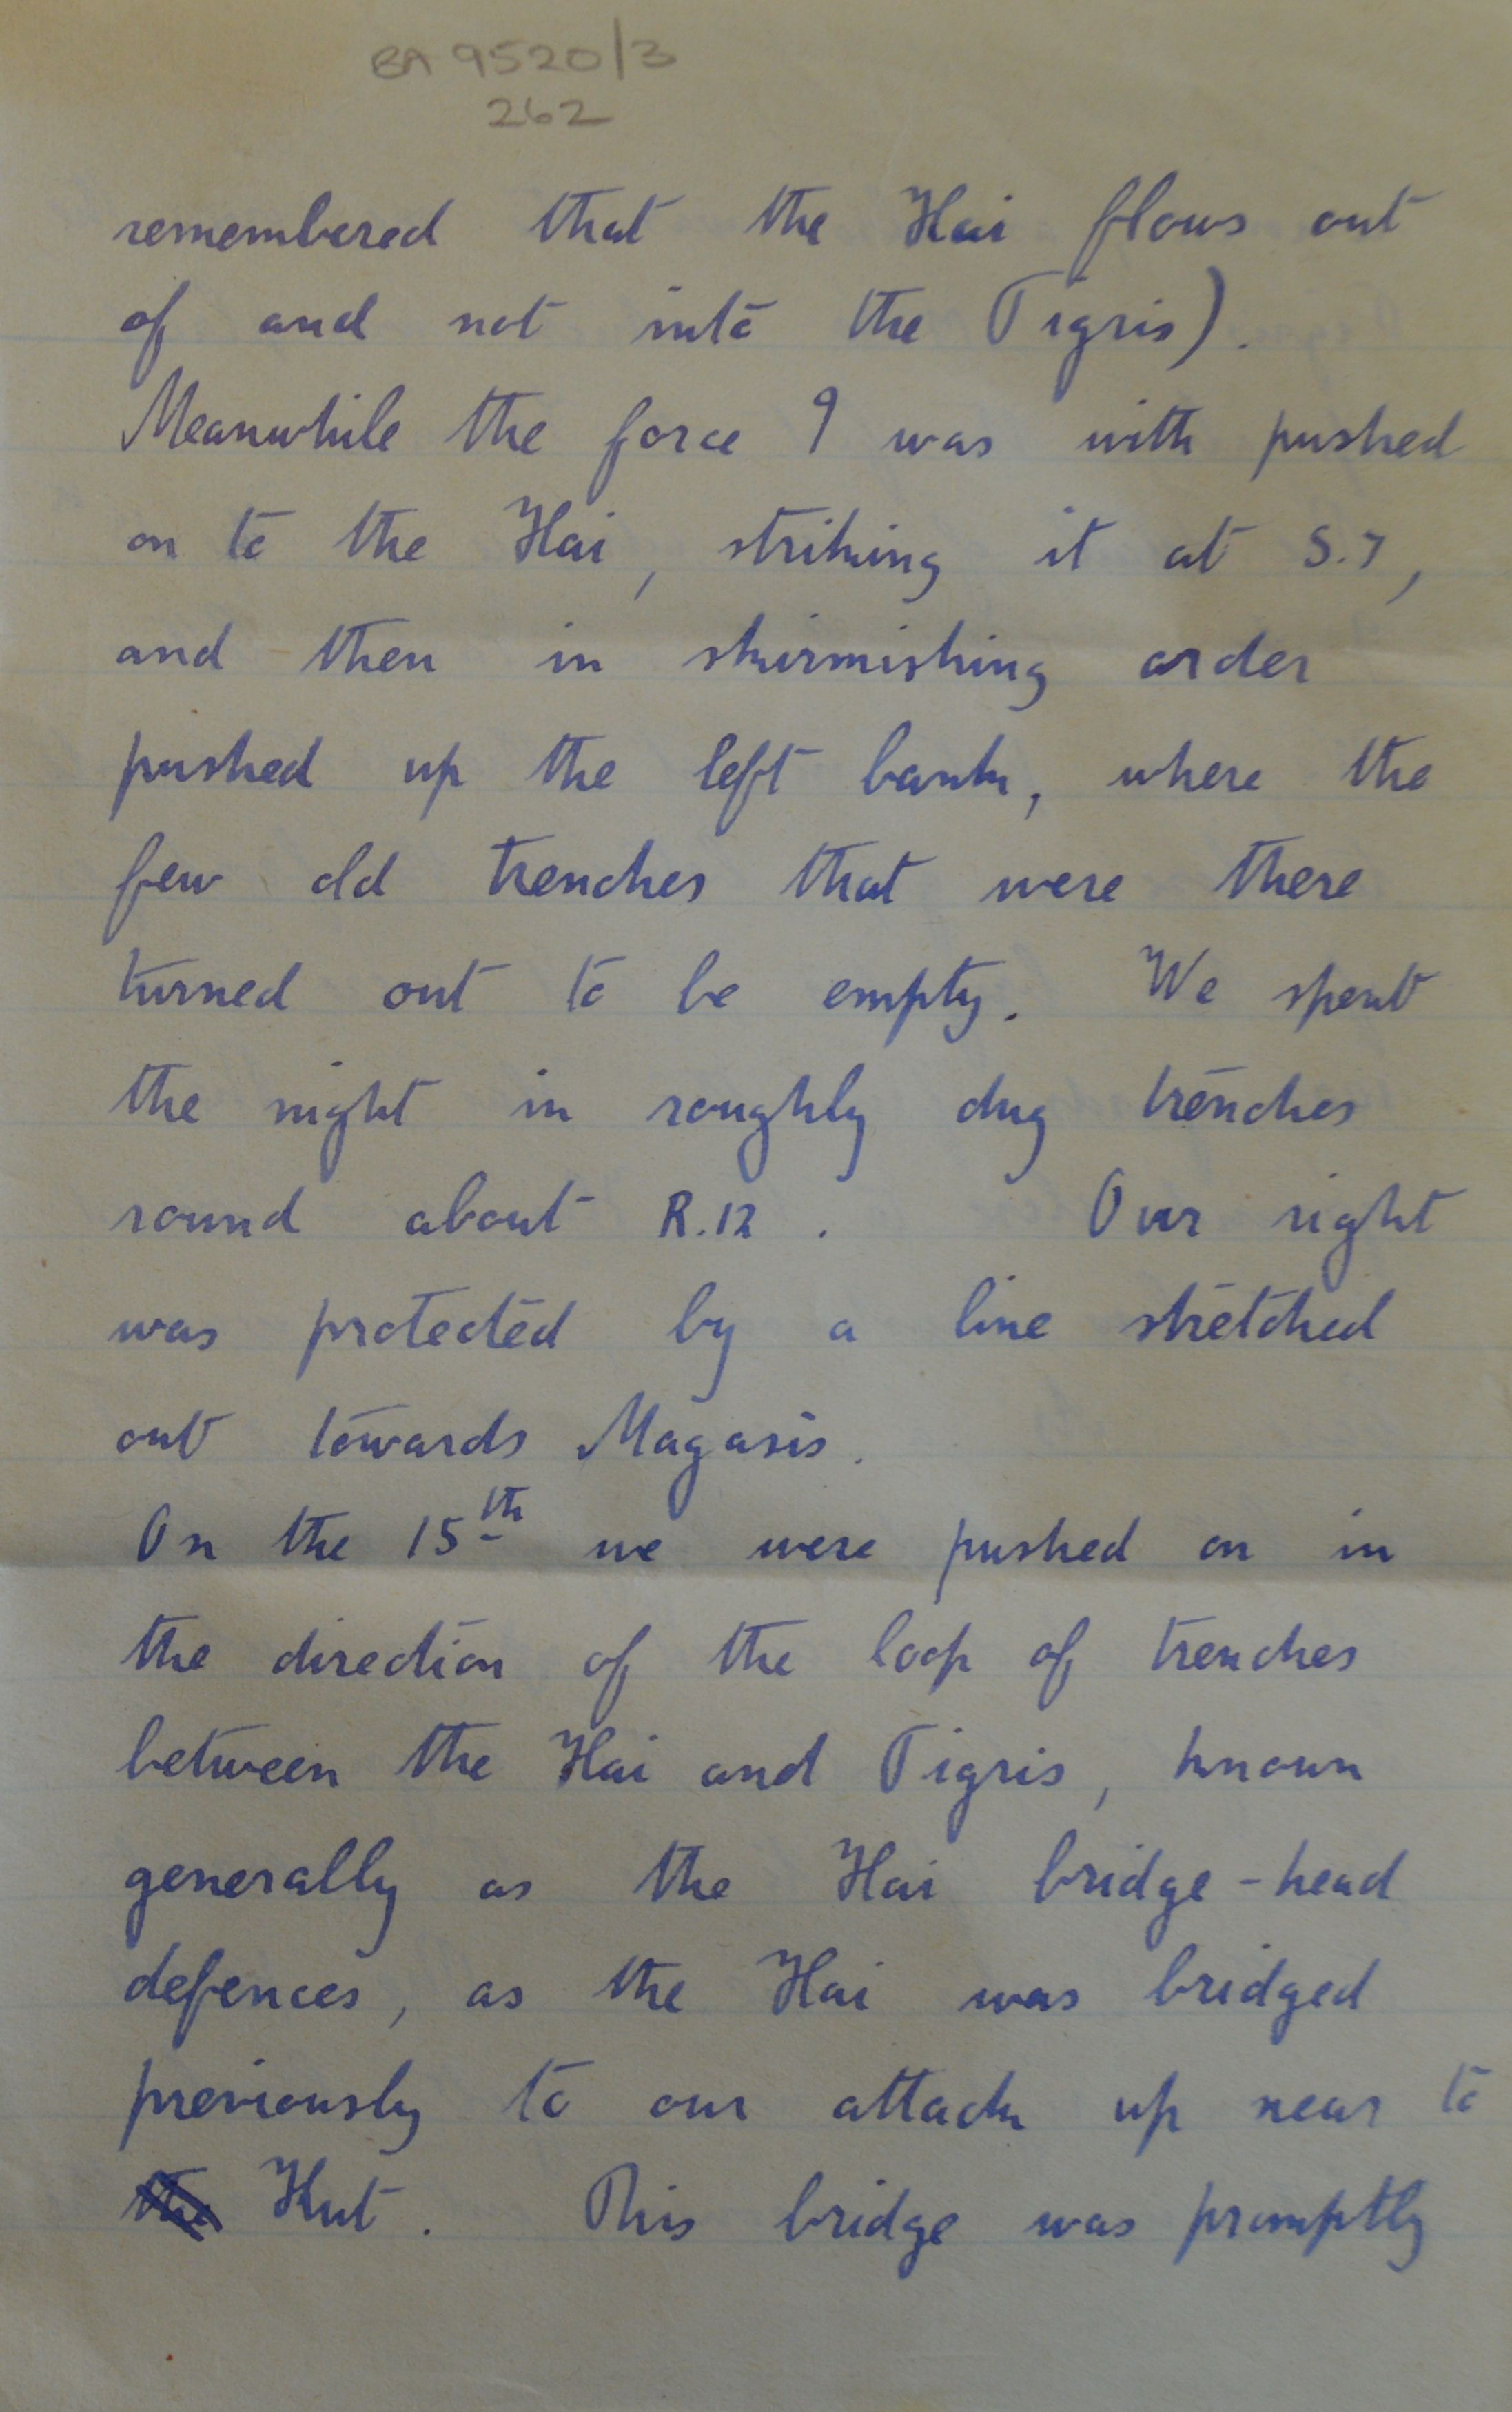 BA 9520/3
262
remembered that the Hai flows out
of and not into the Tigris).
Meanwhile the force I was with pushed
on to the Hai, striking it at S.7,
and then in skirmishing order
pushed up the left bank, where the
few old trenches that were there
turned out to be empty. We spent
the night in roughly dug trenches
round about R.12. Our right
was protected by a line stretched
out towards Magasis.
On the 15th we were pushed on in
the direction of the loop of trenches
between the Hai and Tigris, known
generally as the Hai bridge-head
defences, as the Hai was bridged
previously to our attack up near to
the Kut. This bridge was promptly